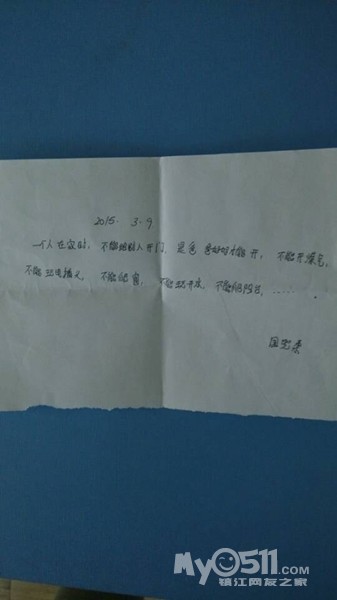 2015. 3. 9
一个人在家时, 不能给陌生人开门, 爸爸妈妈才能开, 不能开煤气,
不能玩电插头, 不能爬窗, 不能玩开水, 不能爬阳台, ……。
My0511.com
镇江网友之家